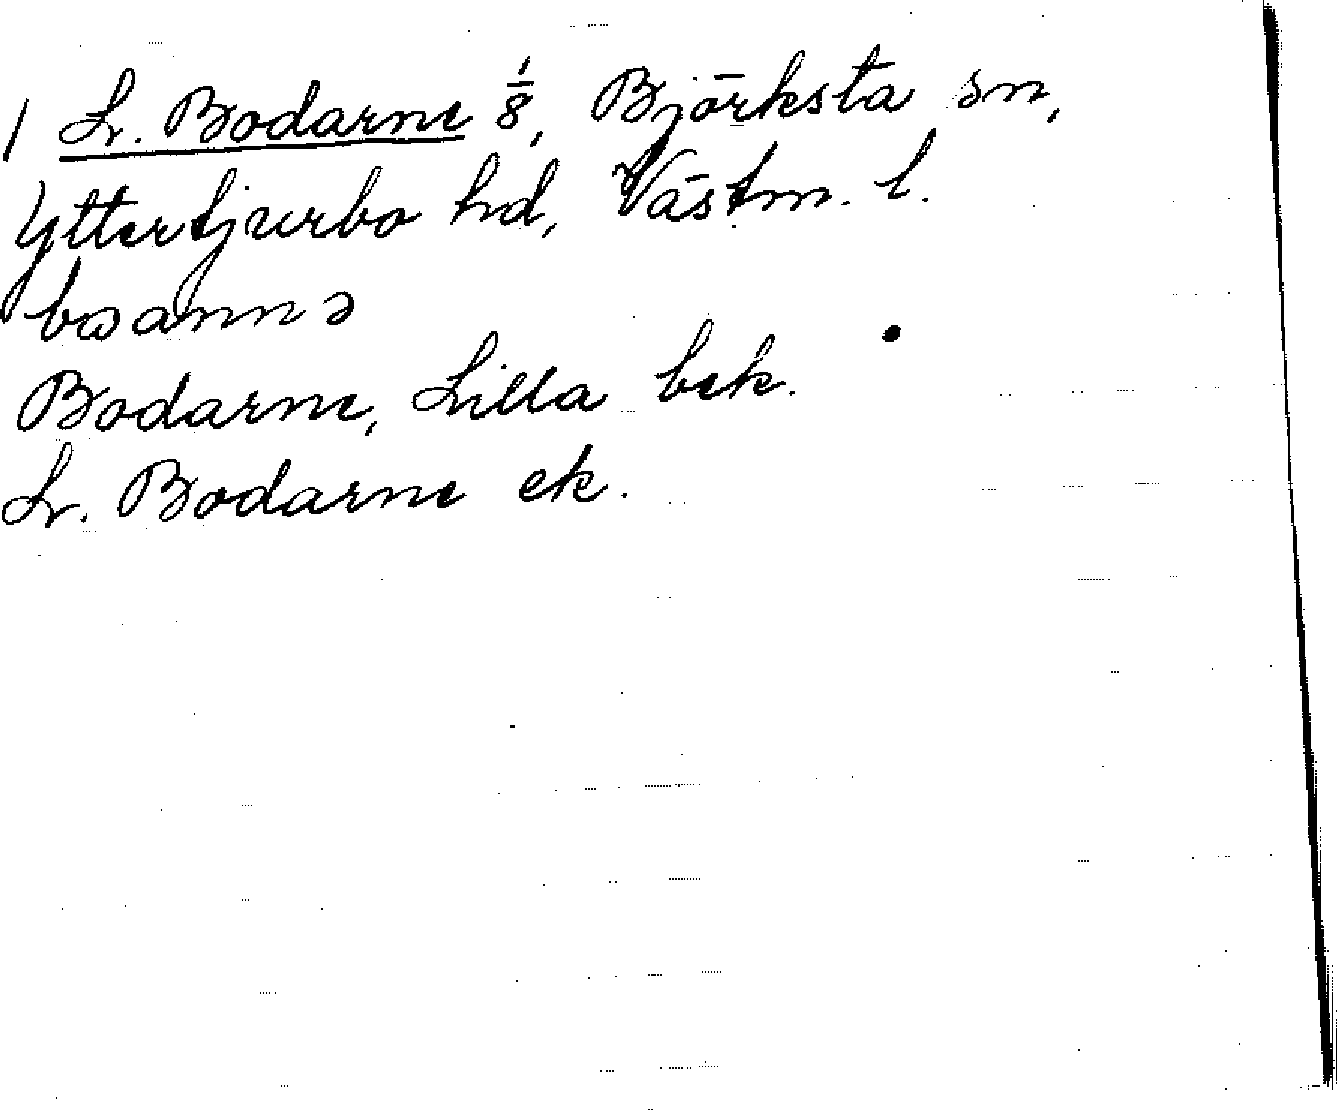 / L. Bodarne 1/8, Björksta sn,
Yttertjurbo hd, Västm. l.
Bodarne, Lilla bek.
L. Bodarne ek.